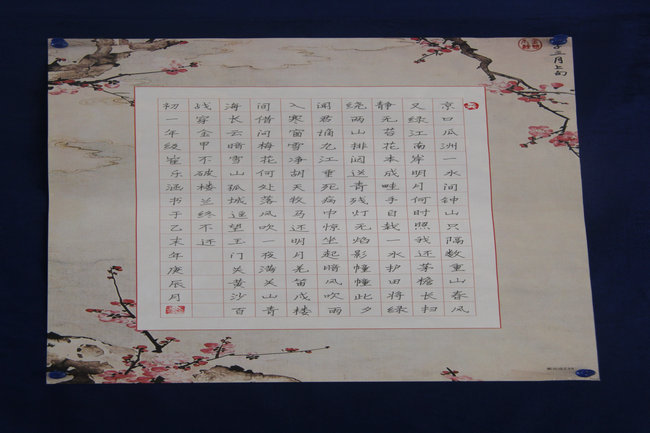 京口瓜洲一水间钟山只隔数重山春风
又绿江南岸明月何时照我还茅檐长扫
静无苔花木成畦手自栽一水护田将绿
绕两山排闼送青残灯无焰影幢幢此夕
闻君谪九江垂死病中惊坐起暗风吹雨
入寒窗雪净胡天牧马还明月羌笛戍楼
间借问梅花何处落风吹一夜满关山青
海长云暗雪山孤城遥望玉门关黄沙百
战穿金甲不破楼兰终不还
初一年级崔乐涵书于乙未年庚辰月